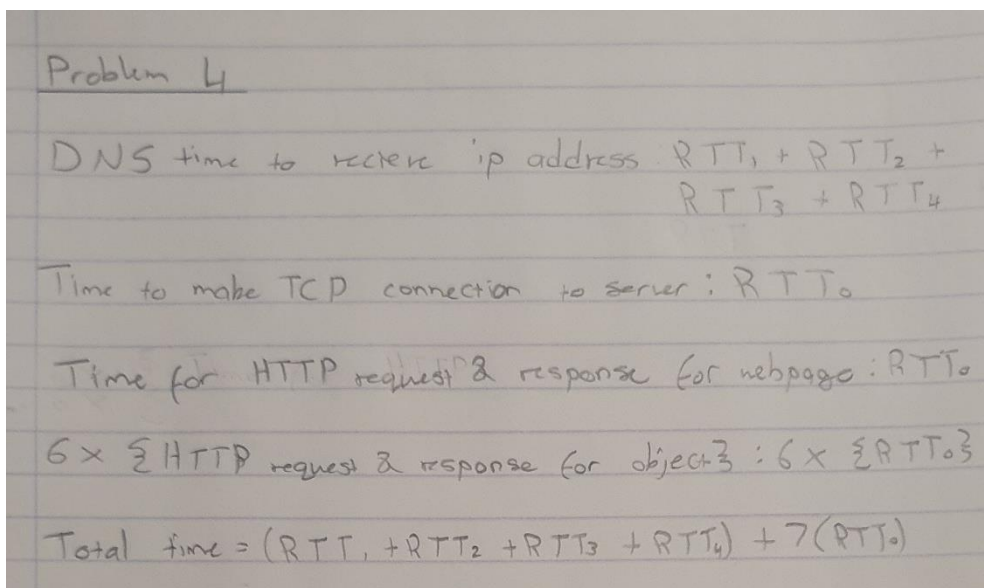 Problem 4
DNS time to recieve ip address RTT₁ + RTT₂ +
RTT₃ + RTT₄
Time to make TCP connection to server : RTT₀
Time for HTTP request & response for webpage : RTT₀
6 × {HTTP request & response for object} : 6 × {RTT₀}
Total time = (RTT₁ + RTT₂ + RTT₃ + RTT₄) + 7(RTT₀)